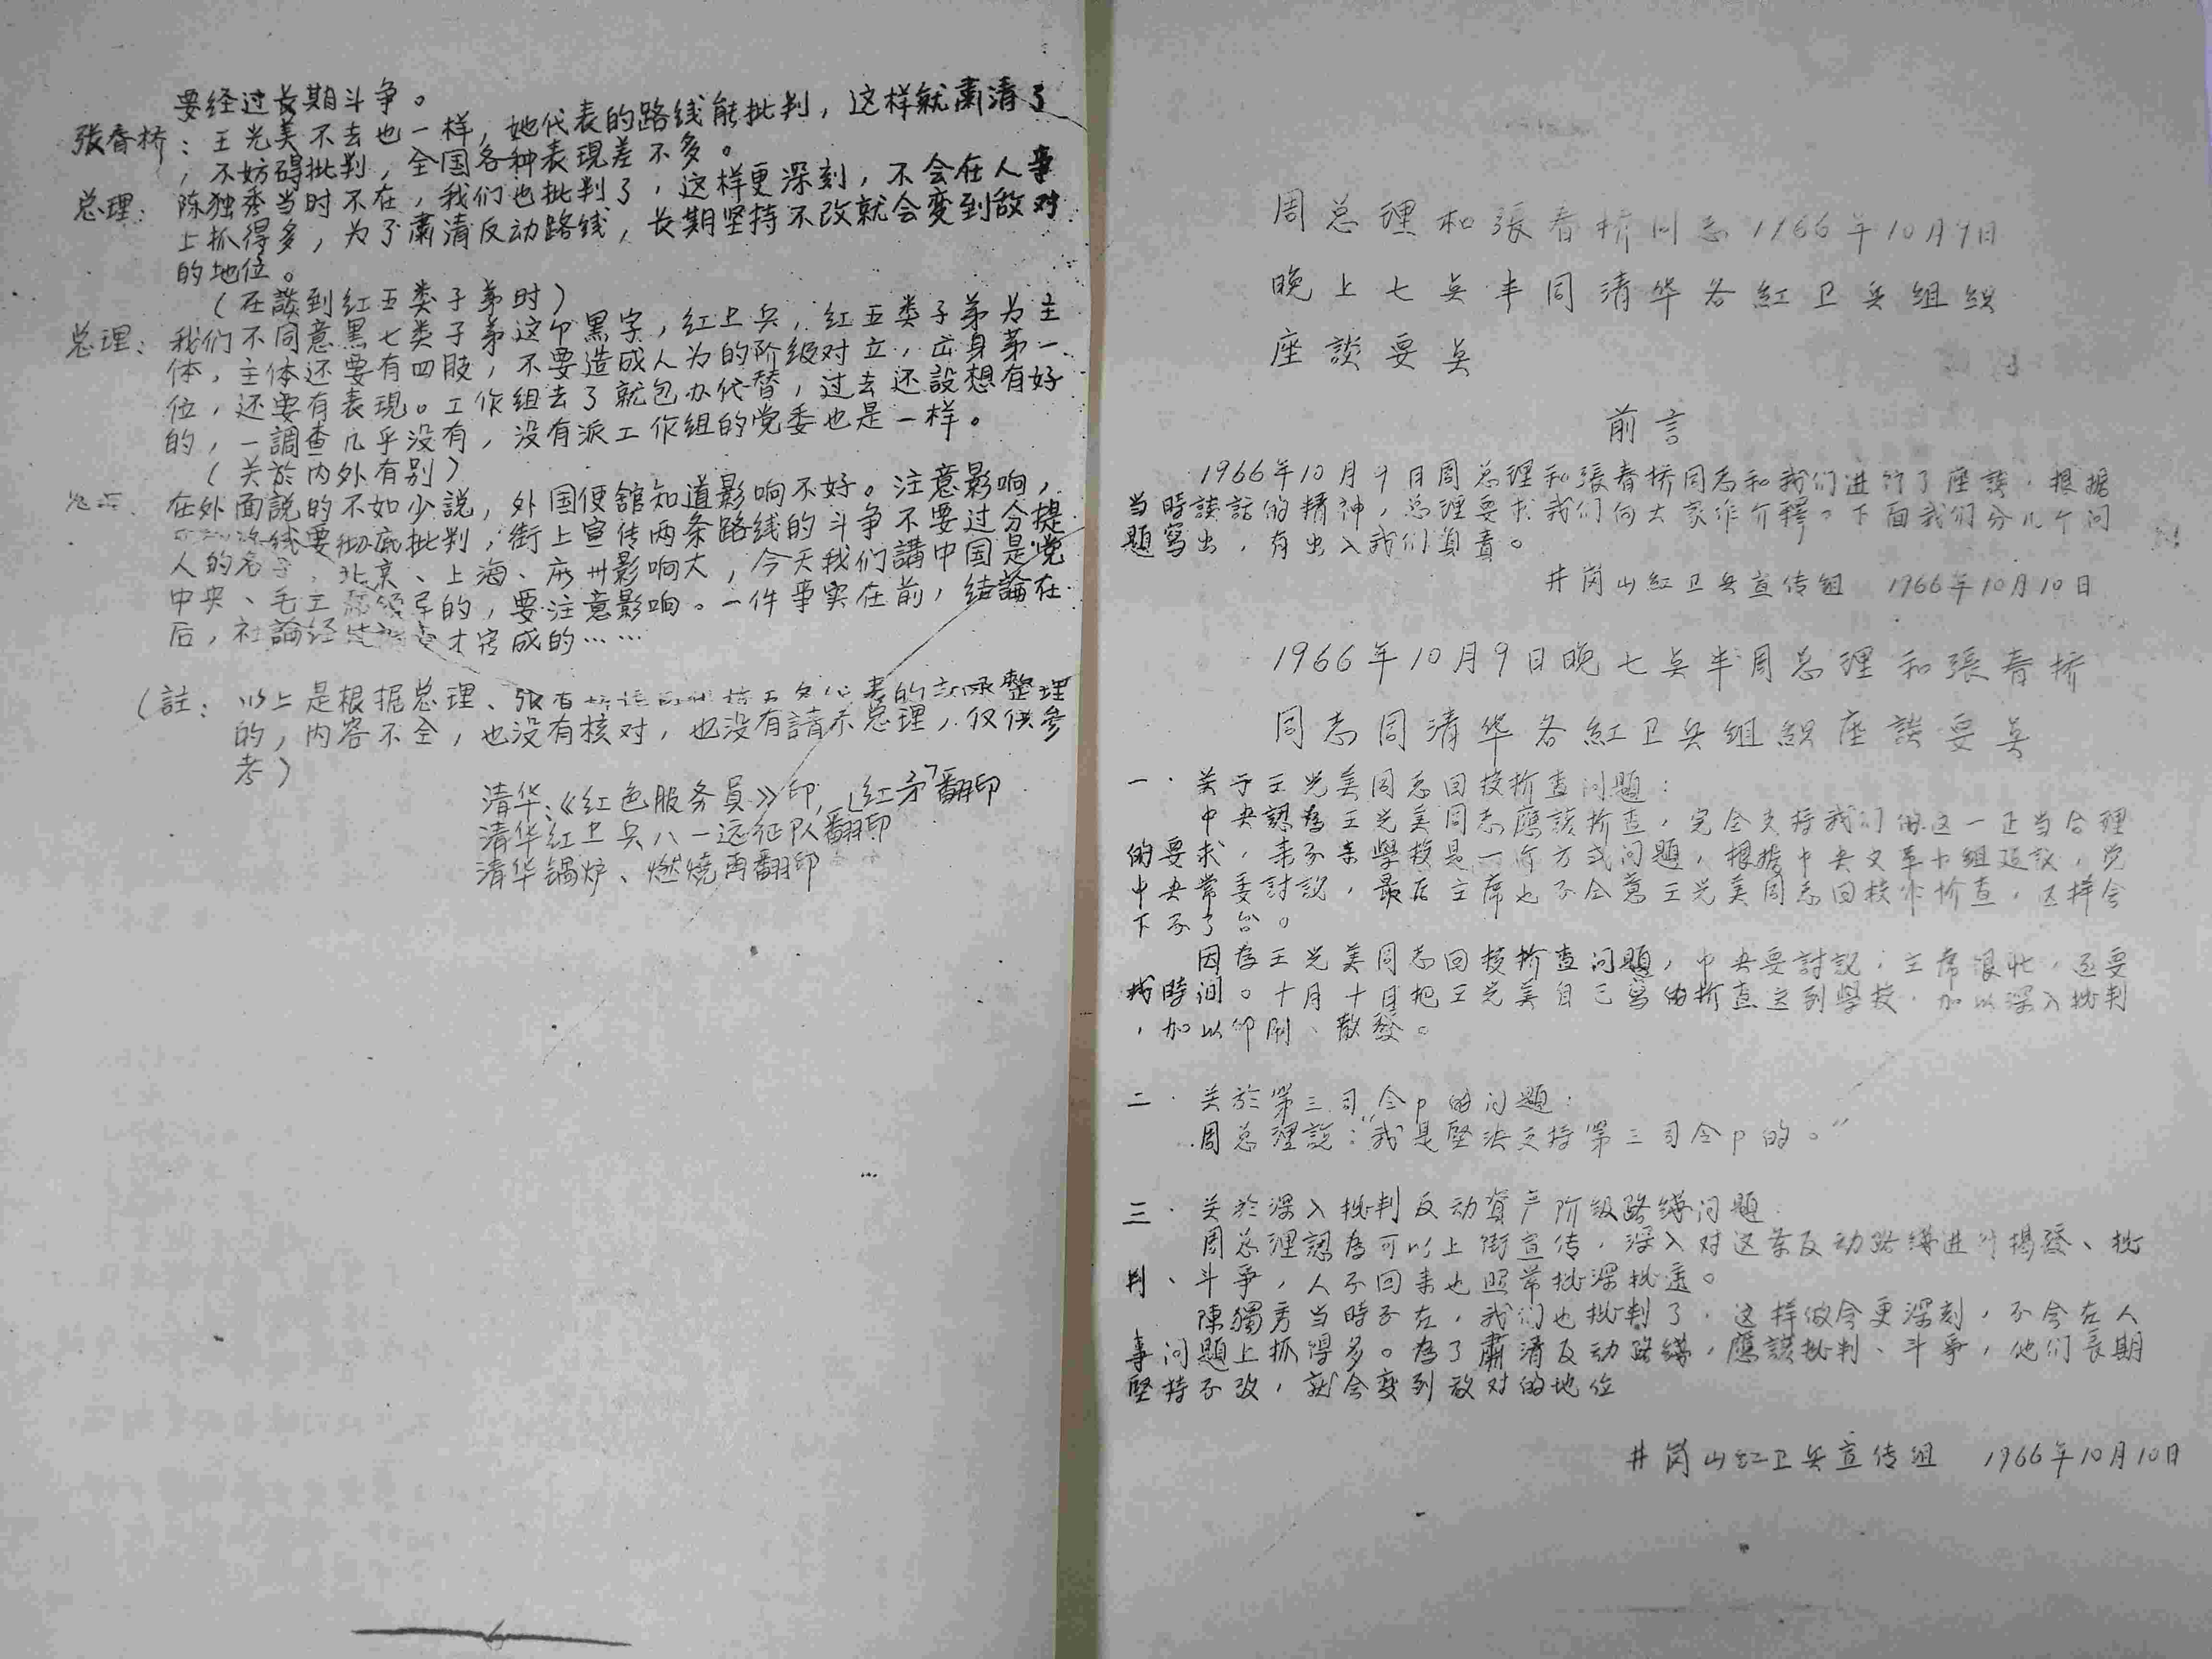 要经过长期斗争。
張春桥：王光美不去也一样，她代表的路线能批判，这样就肃清了
，不妨碍批判，全国各种表現差不多。
总理：陈独秀当时不在，我们也批判了，这样更深刻，不会在人事
上抓得多，为了肃清反动路线，长期坚持不改就会变到敌对
的地位。
（在談到红五类子弟时）
总理：我们不同意黑七类子弟这个黑字，红卫兵，红五类子弟为主
体，主体还要有四肢，不要造成人为的阶级对立，出身第一
位，还要有表現。工作组去了就包办代替，过去还設想有好
的，一調查几乎没有，没有派工作组的党委也是一样。
（关於内外有别）
在外面説的不如少説，外国使館知道影响不好。注意影响，
路线要彻底批判，街上宣传两条路线的斗争不要过分提
人的名字，北京、上海、广州影响大，今天我们講中国是党
中央、毛主席领导的，要注意影响。一件事实在前，结論在
后，社論经过 才写成的……
（註：以上是根据总理、張春 的 整理
的，内容不全，也没有核对，也没有請示总理，仅供参
考）
清华《红色服务员》印，「红矛」翻印
清华红卫兵八一远征队翻印
清华锅炉、燃燒再翻印
6
周总理和張春桥同志1966年10月9日
晚上七点半同清华各紅卫兵组织
座談要点
前言
1966年10月9日周总理和張春桥同志和我们进行了座談，根据
当時談話的精神，总理要求我们向大家作介釋。下面我们分几个问
題寫出，有出入我们負責。
井岗山紅卫兵宣传组 1966年10月10日
1966年10月9日晚七点半周总理和張春桥
同志同清华各紅卫兵组織座談要点
一．关于王光美同志回校检查问題：
中央認為王光美同志應該检查，完全支持我们的这一正当合理
的要求，来不来學校是一个方式问題，根据中央文革小组建議，党
中央常委討論，最后主席也不同意王光美同志回校作检查，这样会
下不了台。
因為王光美同志回校检查问題，中央要討論，主席很忙，还要
找時间。十月十日把王光美自己寫的检查送到學校，加以深入批判
，加以印刷、散發。
二．关於第三司令卩的问題：
周总理説：“我是堅决支持第三司令卩的。”
三．关於深入批判反动資产阶级路綫问題
周总理認為可以上街宣传，深入对这条反动路綫进行揭發、批
判、斗爭，人不回来也照常批深批透。
陳獨秀当時不在，我们也批判了，这样做会更深刻，不会在人
事问題上抓得多。為了肅清反动路綫，應該批判、斗爭，他们長期
堅持不改，就会变到敌对的地位
井岗山紅卫兵宣传组 1966年10月10日